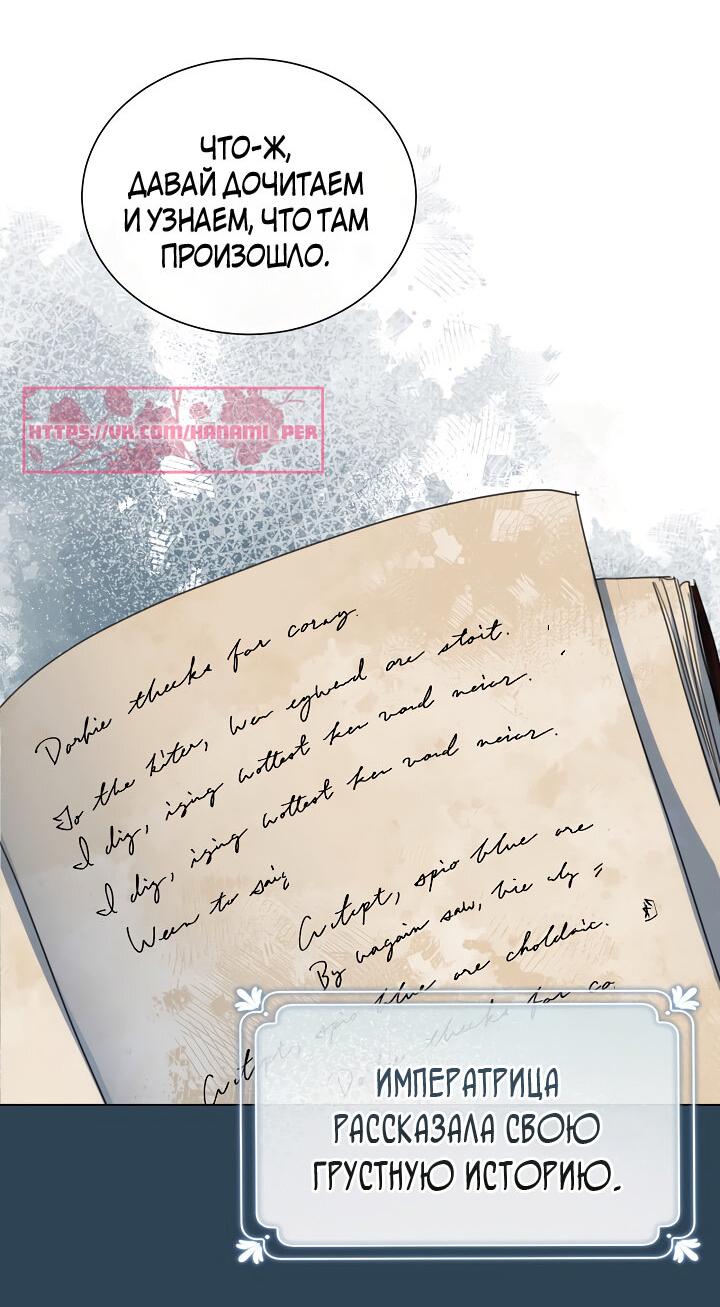 ЧТО-Ж,
ДАВАЙ ДОЧИТАЕМ
И УЗНАЕМ, ЧТО ТАМ
ПРОИЗОШЛО.
HTTPS://VK.COM/HANAMI_PER
thecks for coray.
To the kiter, wen egwend are stoit.
I dig, izing wottest ken vord neior.
I dig, izing wottest ken vord neior.
Ween to saig
spio blue are
By vagain saw, bie
blue are choldaic.
thecks for co
ИМПЕРАТРИЦА
РАССКАЗАЛА СВОЮ
ГРУСТНУЮ ИСТОРИЮ.